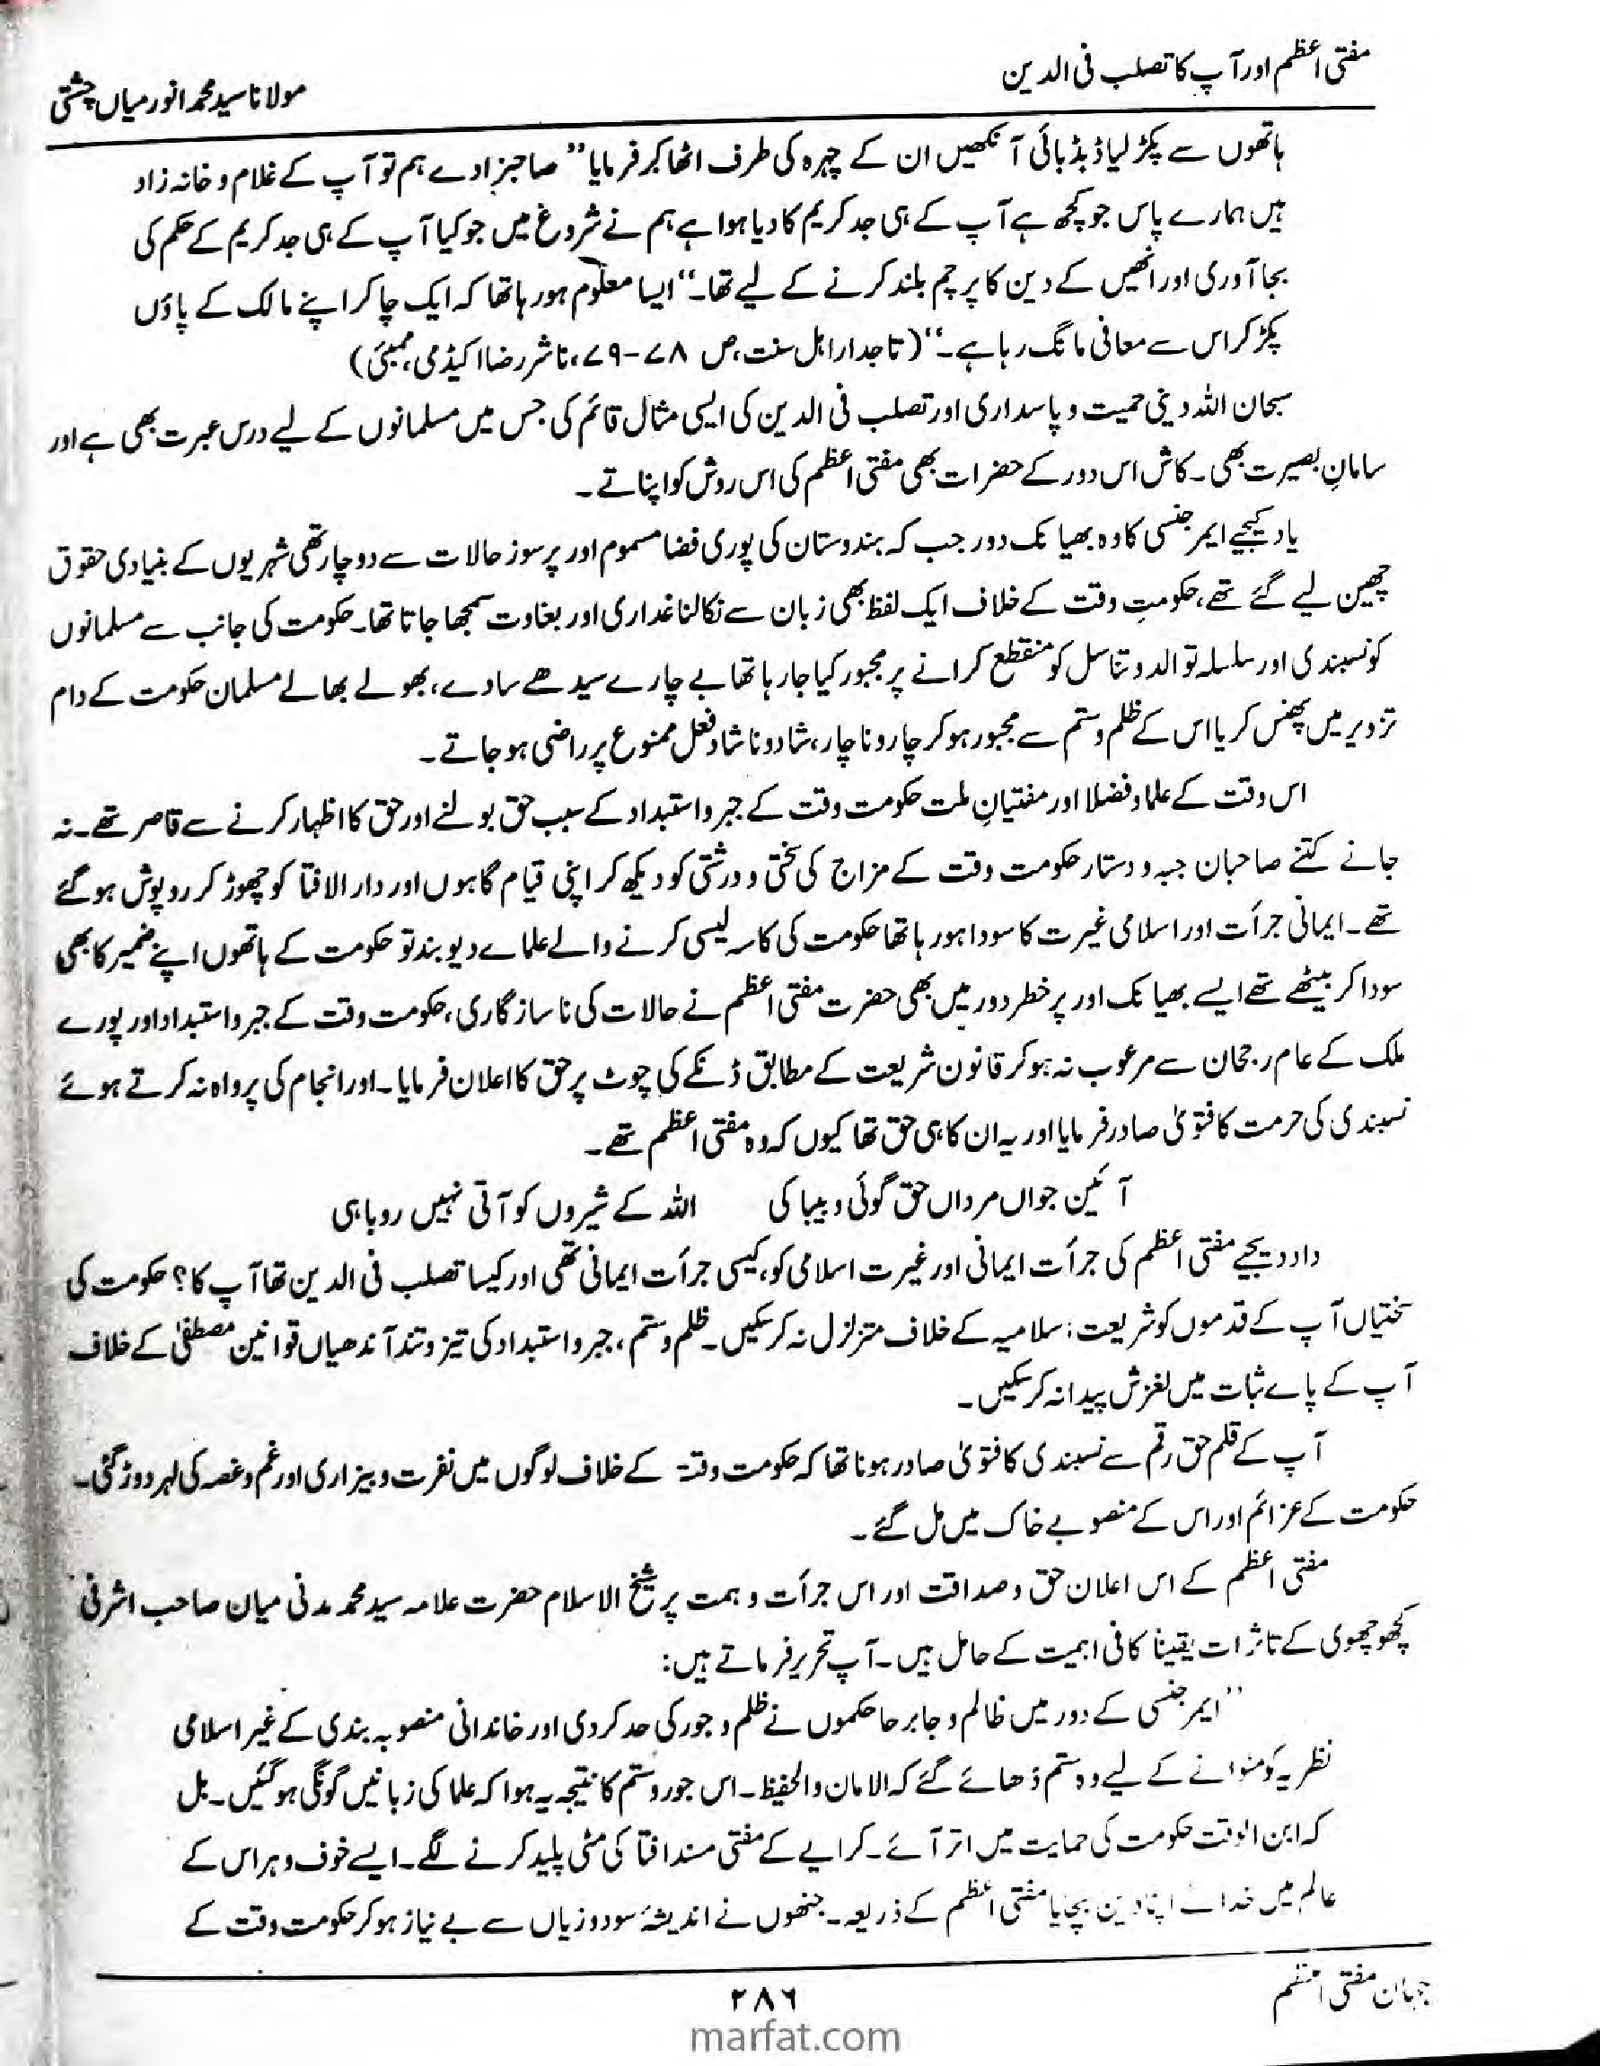 مفتی اعظم اور آپ کا تصلب فی الدین
مولانا سید محمد انور میاں چشتی
ہاتھوں سے پکڑ لیا ڈبڈبائی آنکھیں ان کے چہرہ کی طرف اٹھا کر فرمایا ’’صاحبزادے ہم تو آپ کے غلام و خانہ زاد
ہیں ہمارے پاس جو کچھ ہے آپ کے ہی جد کریم کا دیا ہوا ہے ہم نے شروع میں جو کیا آپ کے ہی جد کریم کے حکم کی
بجا آوری اور انھیں کے دین کا پرچم بلند کرنے کے لیے تھا۔‘‘ ایسا معلوم ہو رہا تھا کہ ایک چاکر اپنے مالک کے پاؤں
پکڑ کر اس سے معافی مانگ رہا ہے۔‘‘ (تاجدار اہل سنت، ص ۷۸-۷۹، ناشر رضا اکیڈمی، ممبئی)
سبحان اللہ دینی حمیت و پاسداری اور تصلب فی الدین کی ایسی مثال قائم کی جس میں مسلمانوں کے لیے درس عبرت بھی ہے اور
سامانِ بصیرت بھی۔ کاش اس دور کے حضرات بھی مفتی اعظم کی اس روش کو اپناتے۔
یاد کیجیے ایمرجنسی کا وہ بھیانک دور جب کہ ہندوستان کی پوری فضا مسموم اور پرسوز حالات سے دوچار تھی شہریوں کے بنیادی حقوق
چھین لیے گئے تھے، حکومتِ وقت کے خلاف ایک لفظ بھی زبان سے نکالنا غداری اور بغاوت سمجھا جاتا تھا۔ حکومت کی جانب سے مسلمانوں
کو نسبندی اور سلسلہ توالد و تناسل کو منقطع کرانے پر مجبور کیا جا رہا تھا بے چارے سیدھے سادے، بھولے بھالے مسلمان حکومت کے دام
تزویر میں پھنس کر یا اس کے ظلم و ستم سے مجبور ہو کر چار و ناچار، شاد و ناشاد فعل ممنوع پر راضی ہو جاتے۔
اس وقت کے علما و فضلا اور مفتیانِ ملت حکومت وقت کے جبر و استبداد کے سبب حق بولنے اور حق کا اظہار کرنے سے قاصر تھے۔ نہ
جانے کتنے صاحبان جبہ و دستار حکومت وقت کے مزاج کی سختی و درشتی کو دیکھ کر اپنی قیام گاہوں اور دار الافتا کو چھوڑ کر روپوش ہو گئے
تھے۔ ایمانی جرأت اور اسلامی غیرت کا سودا ہو رہا تھا حکومت کی کاسہ لیسی کرنے والے علماے دیوبند تو حکومت کے ہاتھوں اپنے ضمیر کا بھی
سودا کر بیٹھے تھے ایسے بھیانک اور پرخطر دور میں بھی حضرت مفتی اعظم نے حالات کی ناسازگاری، حکومت وقت کے جبر و استبداد اور پورے
ملک کے عام رجحان سے مرعوب نہ ہو کر قانون شریعت کے مطابق ڈنکے کی چوٹ پر حق کا اعلان فرمایا۔ اور انجام کی پرواہ نہ کرتے ہوئے
نسبندی کی حرمت کا فتویٰ صادر فرمایا اور یہ ان کا ہی حق تھا کیوں کہ وہ مفتی اعظم تھے۔
آئین جواں مرداں حق گوئی و بیباکی اللہ کے شیروں کو آتی نہیں روباہی
داد دیجیے مفتی اعظم کی جرأت ایمانی اور غیرت اسلامی کو، کیسی جرأت ایمانی تھی اور کیسا تصلب فی الدین تھا آپ کا؟ حکومت کی
سختیاں آپ کے قدموں کو شریعت اسلامیہ کے خلاف متزلزل نہ کر سکیں۔ ظلم و ستم، جبر و استبداد کی تیز و تند آندھیاں قوانین مصطفیٰ کے خلاف
آپ کے پاے ثبات میں لغزش پیدا نہ کر سکیں۔
آپ کے قلم حق رقم سے نسبندی کا فتویٰ صادر ہونا تھا کہ حکومت وقت کے خلاف لوگوں میں نفرت و بیزاری اور غم و غصہ کی لہر دوڑ گئی۔
حکومت کے عزائم اور اس کے منصوبے خاک میں مل گئے۔
مفتی اعظم کے اس اعلان حق و صداقت اور اس جرأت و ہمت پر شیخ الاسلام حضرت علامہ سید محمد مدنی میاں صاحب اشرفی
کچھوچھوی کے تاثرات یقینا کافی اہمیت کے حامل ہیں۔ آپ تحریر فرماتے ہیں:
’’ایمرجنسی کے دور میں ظالم و جابر حاکموں نے ظلم و جور کی حد کردی اور خاندانی منصوبہ بندی کے غیر اسلامی
نظریہ کو منوانے کے لیے وہ ستم ڈھائے گئے کہ الامان والحفیظ۔ اس جور و ستم کا نتیجہ یہ ہوا کہ علما کی زبانیں گونگی ہو گئیں۔ بل
کہ ابن الوقت حکومت کی حمایت میں اتر آئے۔ کرایے کے مفتی مسند افتا کی مٹی پلید کرنے لگے۔ ایسے خوف و ہراس کے
عالم میں خدا نے اپنا دین بچایا مفتی اعظم کے ذریعہ۔ جنھوں نے اندیشۂ سود و زیاں سے بے نیاز ہو کر حکومت وقت کے
جہان مفتی اعظم
۲۸۶
marfat.com